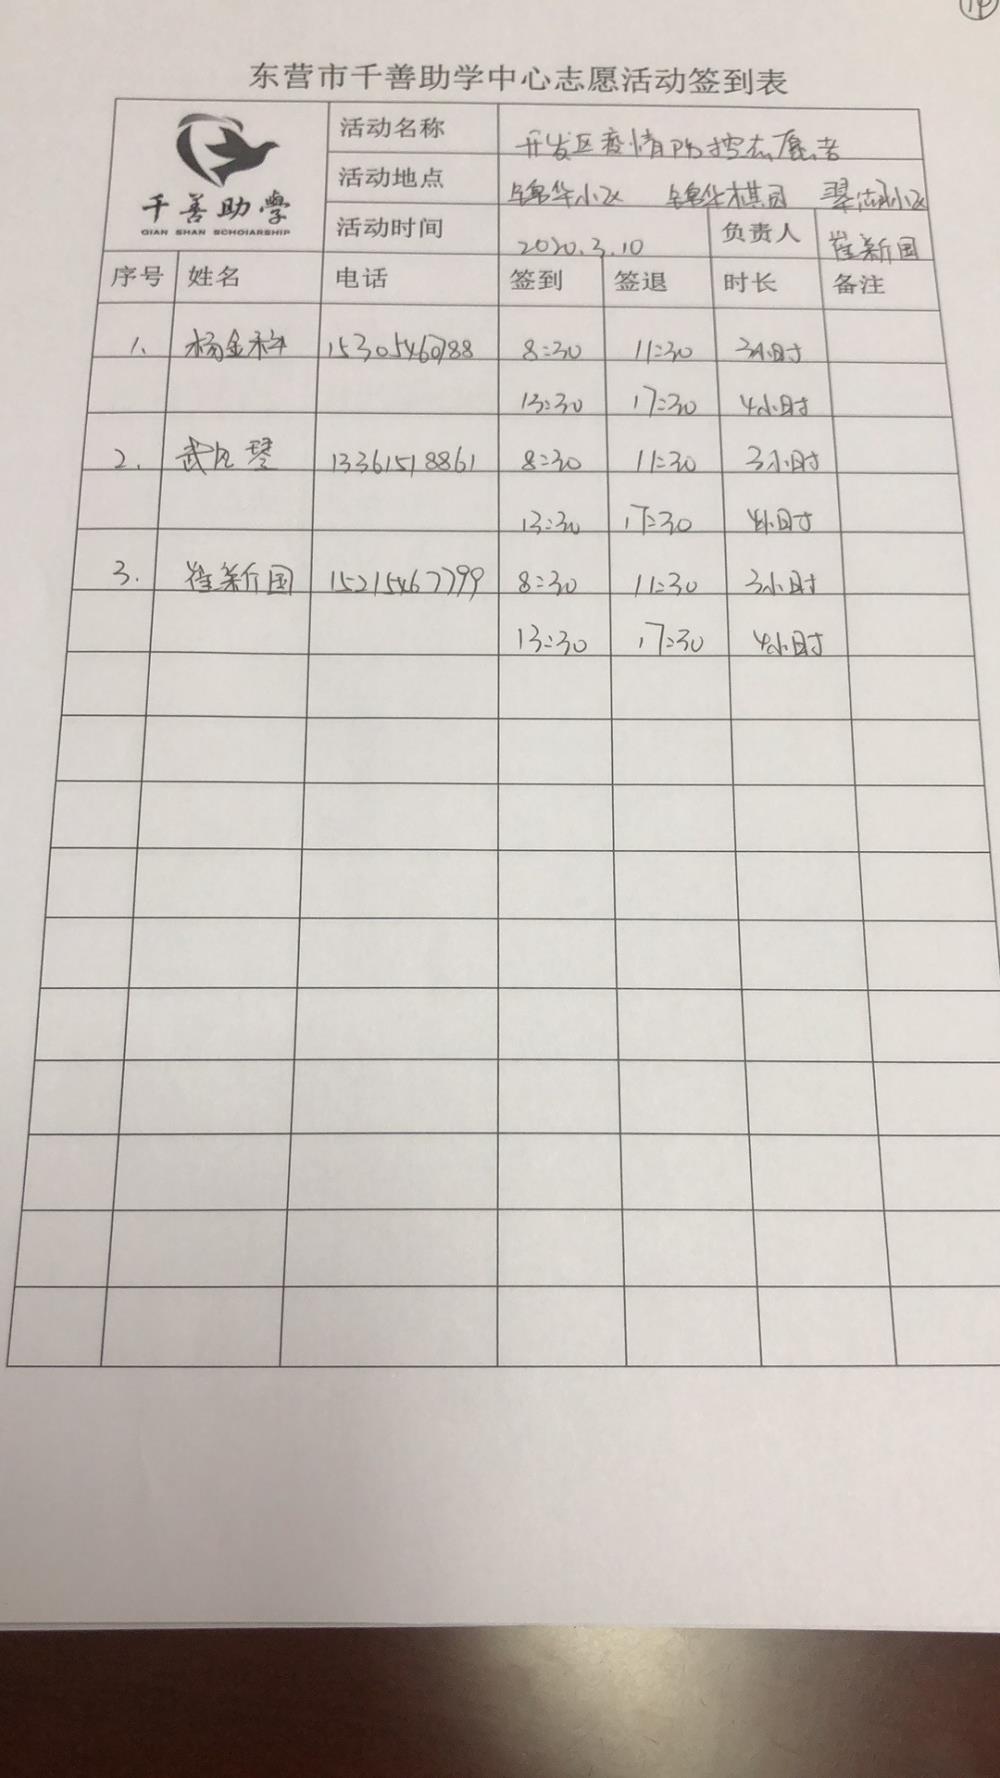 东营市千善助学中心志愿活动签到表
千善助學
QIAN SHAN SCHOIARSHIP
活动名称 开发区疫情防控志愿者
活动地点 锦华小区 锦华棋园 翠湖小区
活动时间 2020.3.10 负责人 崔新国
序号 姓名 电话 签到 签退 时长 备注
1. 杨金科 15305460788 8:30 11:30 3小时
13:30 17:30 4小时
2. 武 琴 13361518861 8:30 11:30 3小时
13:30 17:30 4小时
3. 崔新国 15215467799 8:30 11:30 3小时
13:30 17:30 4小时